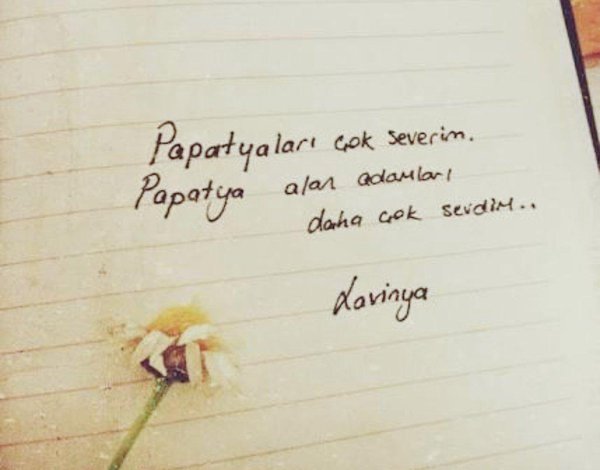 Papatyaları çok severim.
Papatya alan adamları
daha çok sevdim..
Lavinya